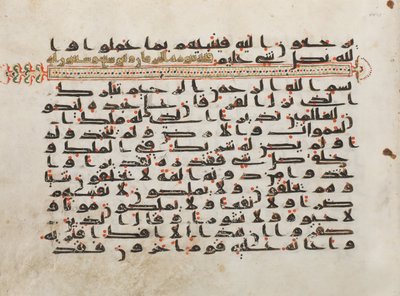 يرجعون اليه فينبئهم بما عملوا و ا
لله بكل شي عليم
بسم الله الرحمن الرحيم تبارك
الذي نزل الفرقان على عبده ليكون
للعلمين نذيرا الذي له ملك
السموت والارض ولم يتخذ ولدا
ولم يكن له شريك في الملك و
خلق كل شي فقدره تقديرا وا
تخذوا من دونه الهة لا يخلقون شيا
و هم يخلقون ولا يملكون لانفسهم
ضرا ولا نفعا ولا يملكون موتا و
لا حيوة ولا نشورا وقال الذين
كفروا ان هذا الا افك افتريه
واعانه عليه قوم اخرون فقد